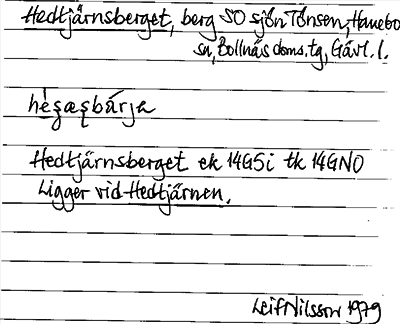 Hedtjärnsberget, berg SO sjön Tönsen, Hanebo
sn, Bollnäs doms.tg, Gävl. l.
Hedtjärnsberget ek 14G5i tk 14GNO
Ligger vid Hedtjärnen.
Leif Nilsson 1979